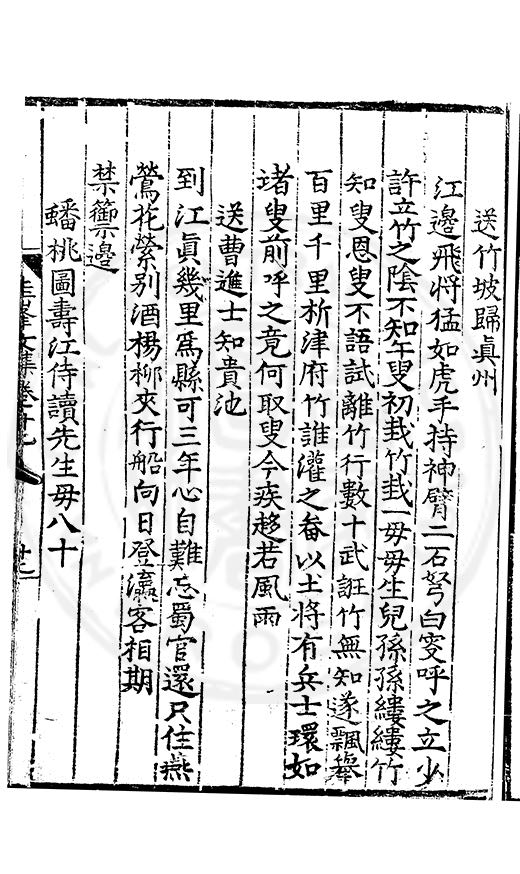 送竹坡歸眞州
江邊飛將猛如虎手持神臂二石弩白叟呼之立少
許立竹之陰不知午叟初栽竹栽一毋毋生兒孫孫縷縷竹
知叟恩叟不語試離竹行數十武誑竹無知遂飄舉
百里千里析津府竹誰灌之畚以土將有兵士環如
堵叟前呼之竟何取叟今疾趍若風雨
送曹進士知貴池
到江眞幾里爲縣可三年心自難忘蜀官還只住燕
鶯花縈别酒楊柳夾行船向日登瀛客相期
禁籞邊
蟠桃圖壽江侍讀先生毋八十
圭峯文集卷十九